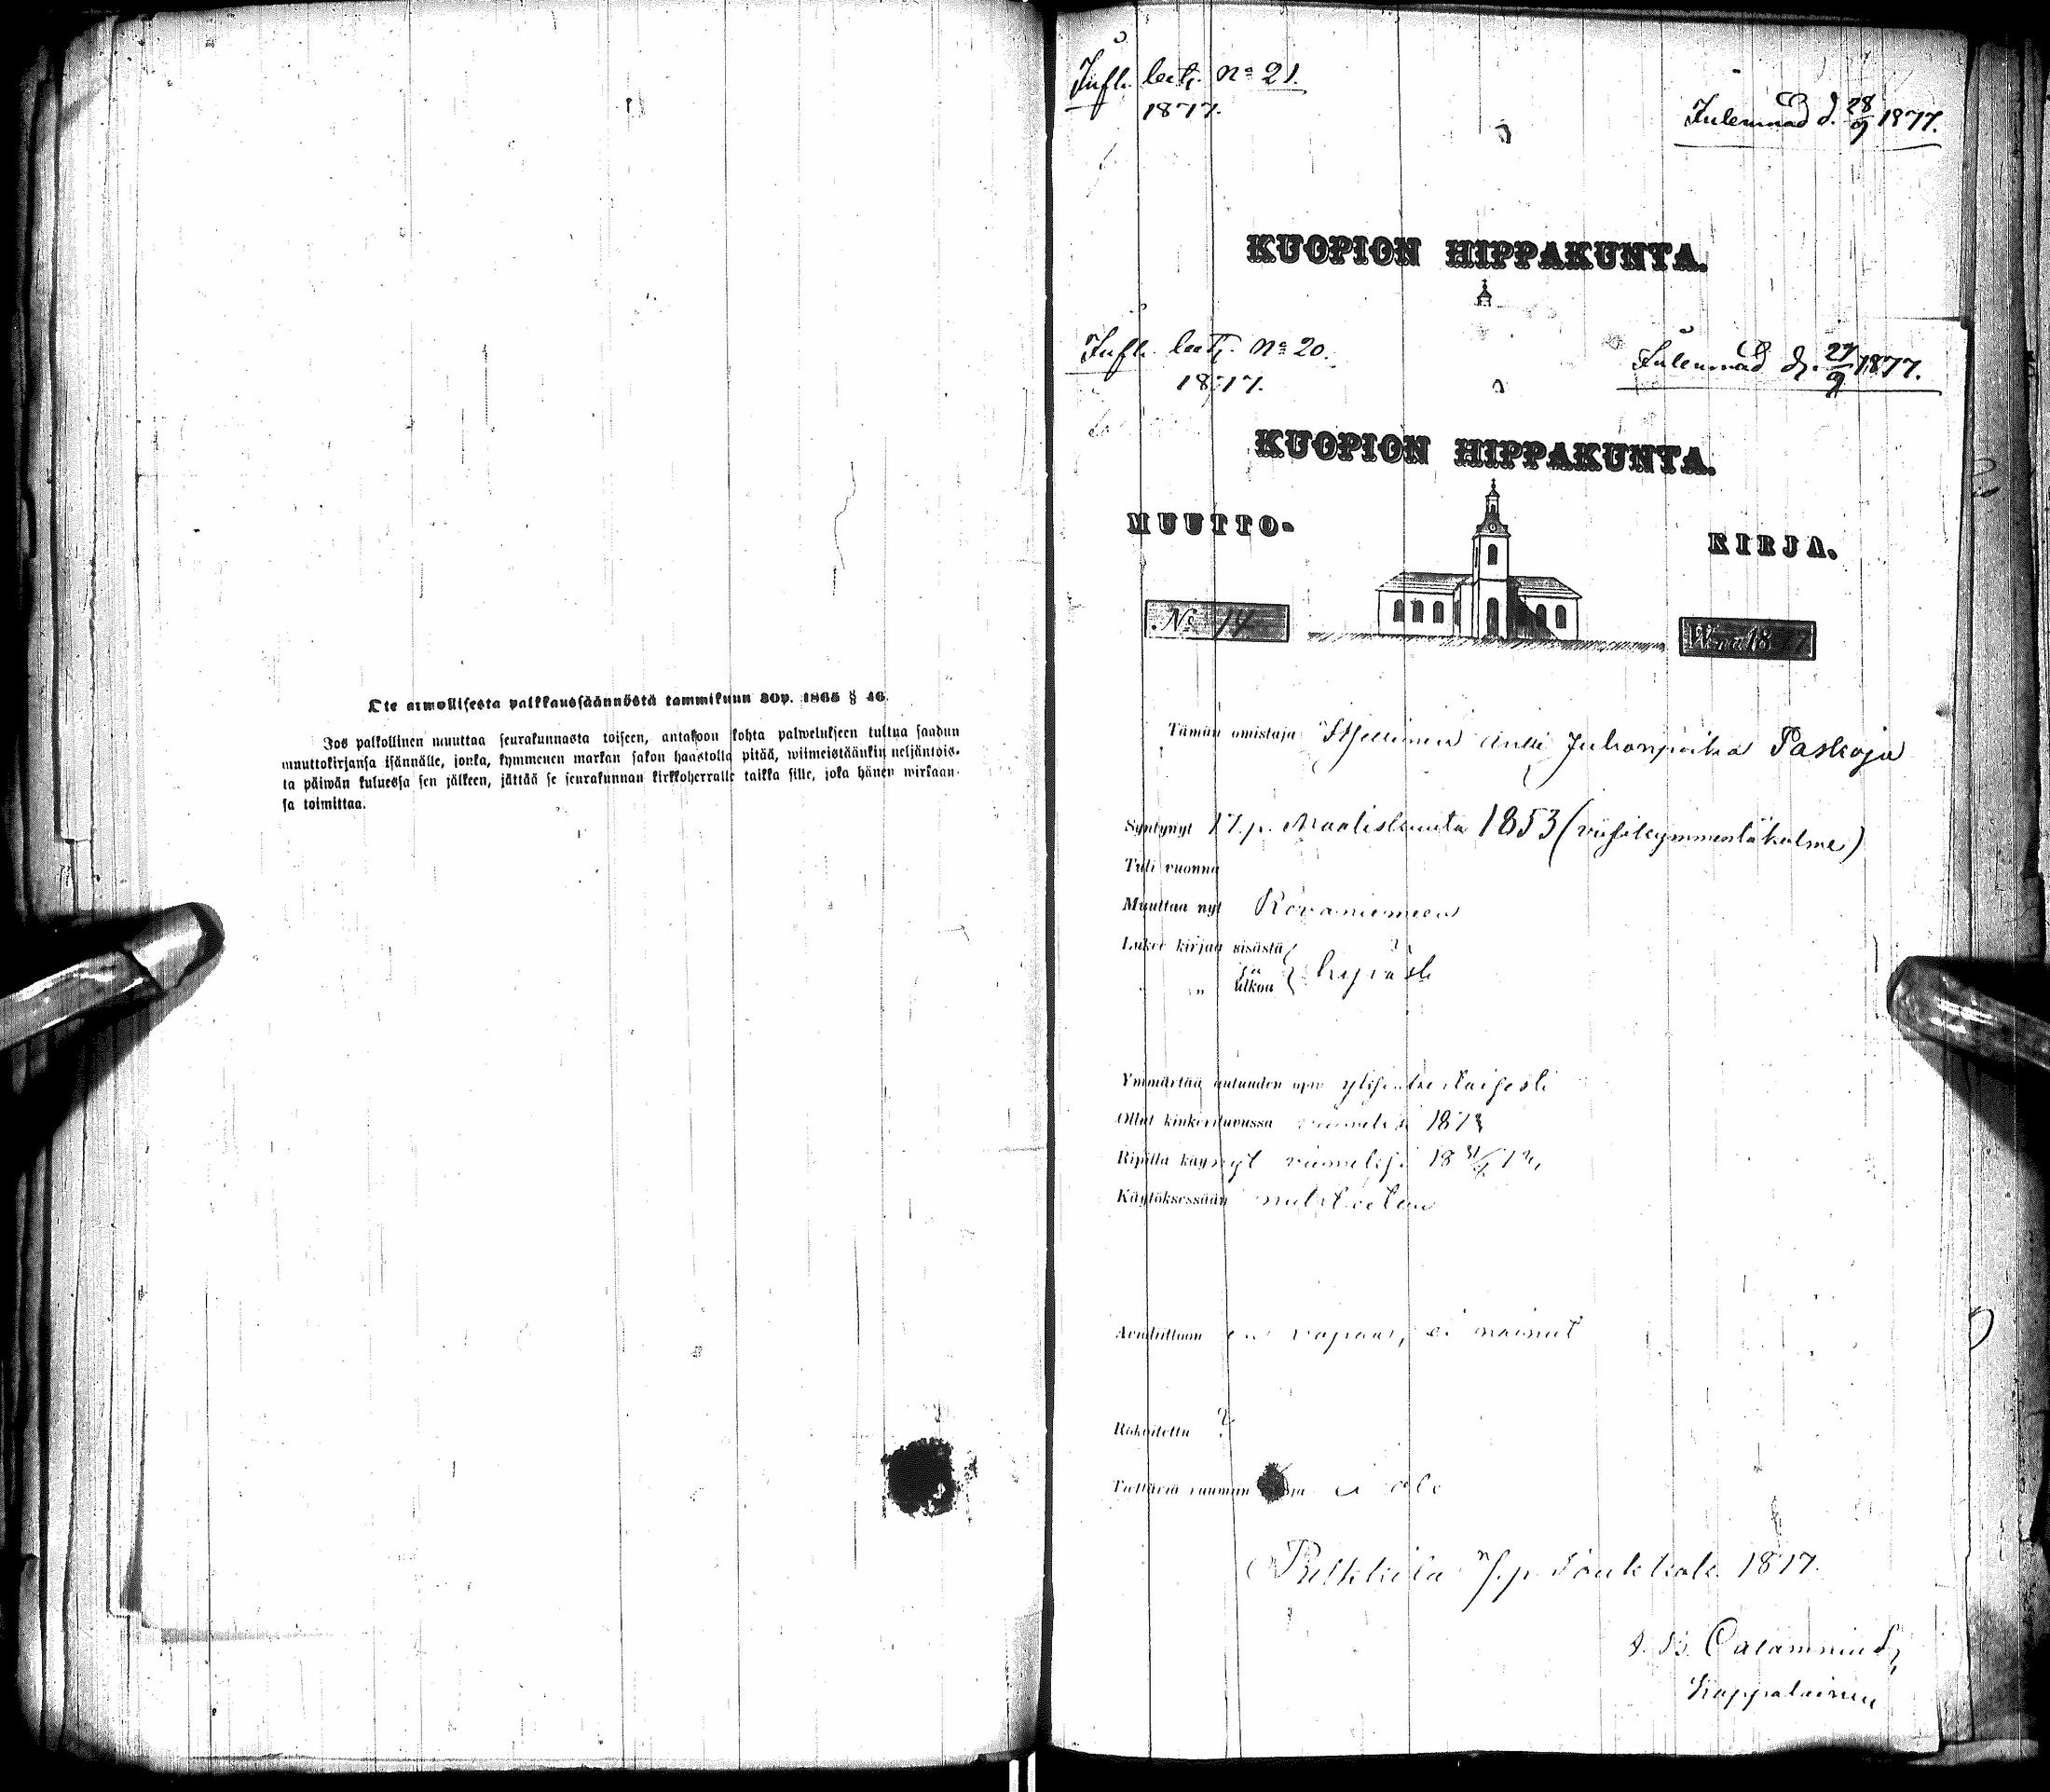 Ote armollisesta palkkaussäännöstä tammikuun 30p. 1865 § 46.
Jos palkollinen muuttaa seurakunnasta toiseen, antakoon kohta palwelukseen tultua saadun
muuttokirjansa isännälle, jonka, kymmenen markan sakon haastolla pitää, wiimeistäänkin neljäntois-
ta päiwän kuluessa sen jälkeen, jättää se seurakunnan kirkkoherralle taikka sille, joka hänen wirkaan-
sa toimittaa.
Infl. bet. No 21.
1877.
Inlemnad d. 28/9 1877.
KUOPION HIPPAKUNTA.
Infl. bet. No 20.
1877.
Inlemnad d. 27/9 1877.
KUOPION HIPPAKUNTA.
MUUTTO-
KIRJA.
No 14
Wnna 1877
Tämän omistaja Itsellinen Antti Juhonpoika Paskoja
Syntynyt 17. p. Maaliskuuta 1853 (viisikymmentäkolme)
Tuli vuonna
Muuttaa nyt Rovaniemeen
Lukee kirjaa sisästä
ja hyvästi
„ ulkoa
Ymmärtää autuuden opin yksinkertaisesti
Ollut kinkeriluvussa viimeksi
Ripillä käynyt viimeksi
Käytöksessään nuhteeton
Avioliittoon on vapaa, ei nainut
Rokoitettu ?
Tiettäviä ruumiin ei ole
Pulkkila p. Toukok. 1877.
Calamnius,
Kappalainen